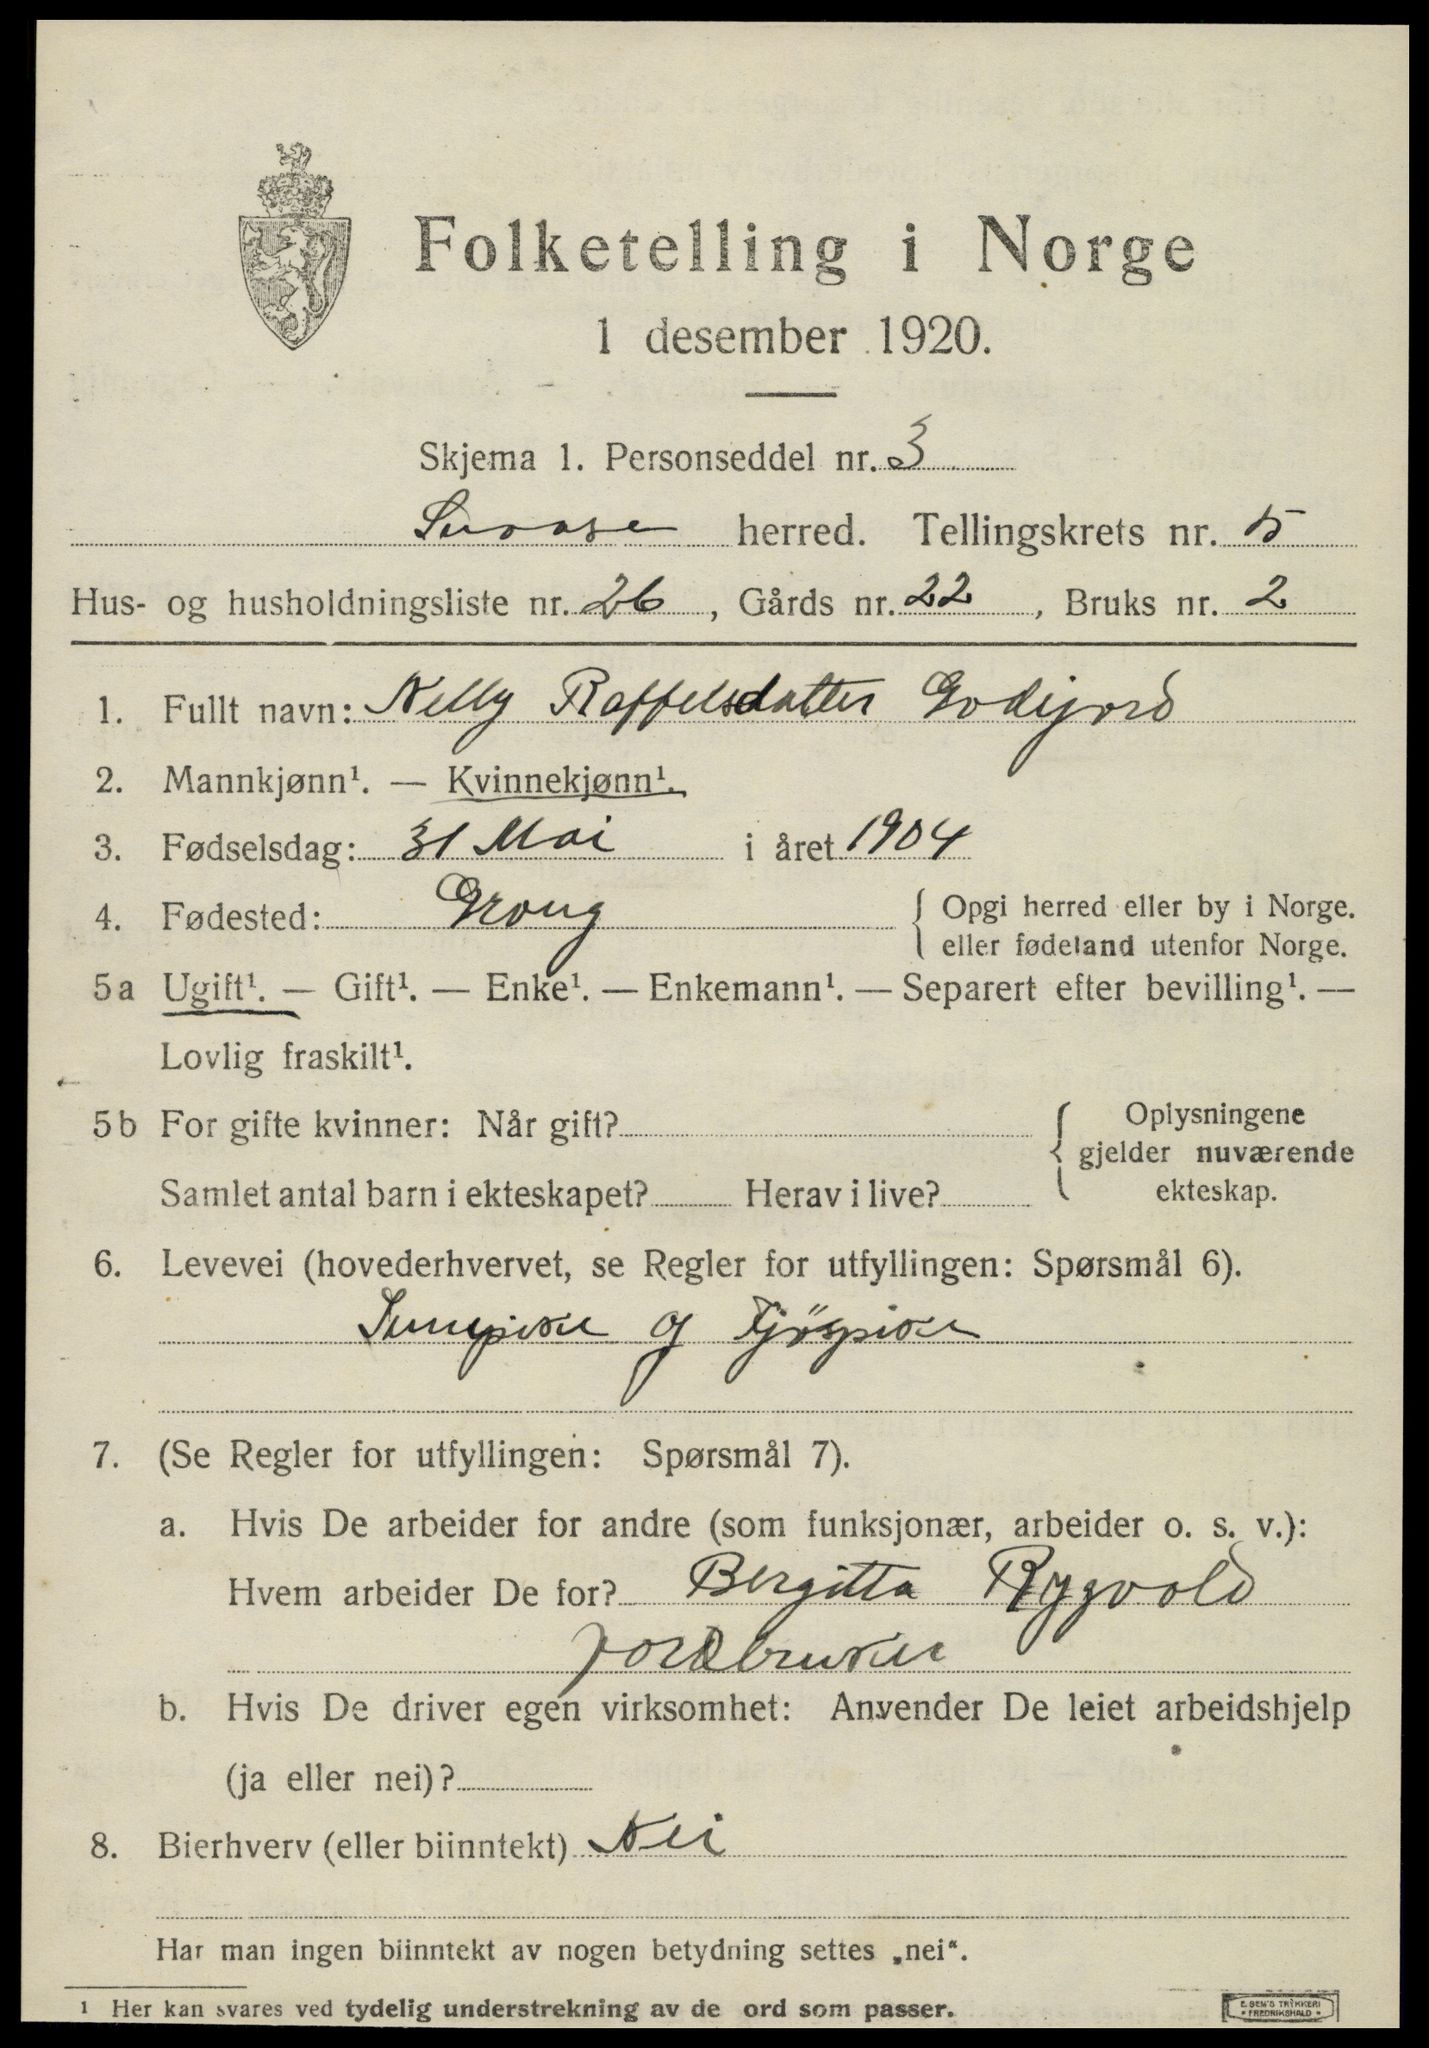 Folketelling i Norge
1 desember 1920.
Skjema 1. Personseddel nr. 3
Snaase herred. Tellingskrets nr. 5
Hus- og husholdningsliste nr. 26, Gårds nr. 22, Bruks nr. 2
1. Fullt navn: Nelly Raffelsdatter Godejord
2. Mannkjønn¹. — Kvinnekjønn¹.
3. Fødselsdag: 31 Mai i året 1904
4. Fødested: Grong { Opgi herred eller by i Norge.
eller fødeland utenfor Norge.
5a Ugift¹. — Gift¹. — Enke¹. — Enkemann¹. — Separert efter bevilling¹. —
Lovlig fraskilt¹.
5b For gifte kvinner: Når gift? { Oplysningene
gjelder nuværende
ekteskap.
Samlet antal barn i ekteskapet? Herav i live?
6. Levevei (hovederhvervet, se Regler for utfyllingen: Spørsmål 6).
og Fjøspike
7. (Se Regler for utfyllingen: Spørsmål 7).
a. Hvis De arbeider for andre (som funksjonær, arbeider o. s. v.):
Hvem arbeider De for? Bergitta Rygvold
jordbruker
b. Hvis De driver egen virksomhet: Anvender De leiet arbeidshjelp
(ja eller nei)?
8. Bierhverv (eller biinntekt) Nei
Har man ingen biinntekt av nogen betydning settes „nei“.
¹ Her kan svares ved tydelig understrekning av de ord som passer.
E. SEM'S TRYKKERI
• FREDRIKSHALD •